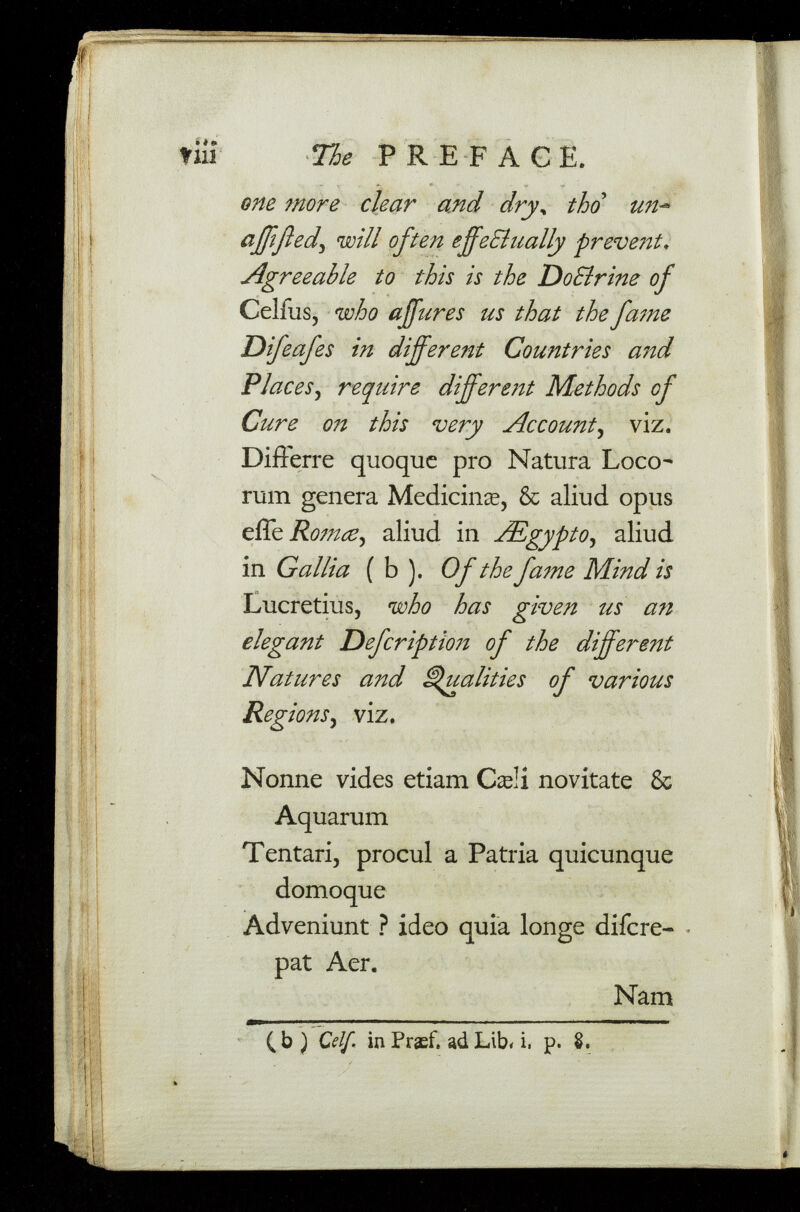 viii The PREFACE.
one more clear and dry, tho' un-
aſſiſted, will often effectually prevent.
Agreeable to this is the Doctrine of
Celſus, who aſſures us that the ſame
Diſeaſes in different Countries and
Places, require different Methods of
Cure on this very Account, viz.
Differre quoque pro Natura Loco-
rum genera Medicinæ, & aliud opus
eſſe Romæ, aliud in Ægypto, aliud
in Gallia ( b ). Of the ſame Mind is
Lucretius, who has given us an
elegant Deſcription of the different
Natures and Qualities of various
Regions, viz.
Nonne vides etiam Cæli novitate &
Aquarum
Tentari, procul a Patria quicunque
domoque
Adveniunt ? ideo quia longe diſcre-
pat Aer.
Nam
( b ) Celſ. in Præf. ad Lib. i. p. 8.